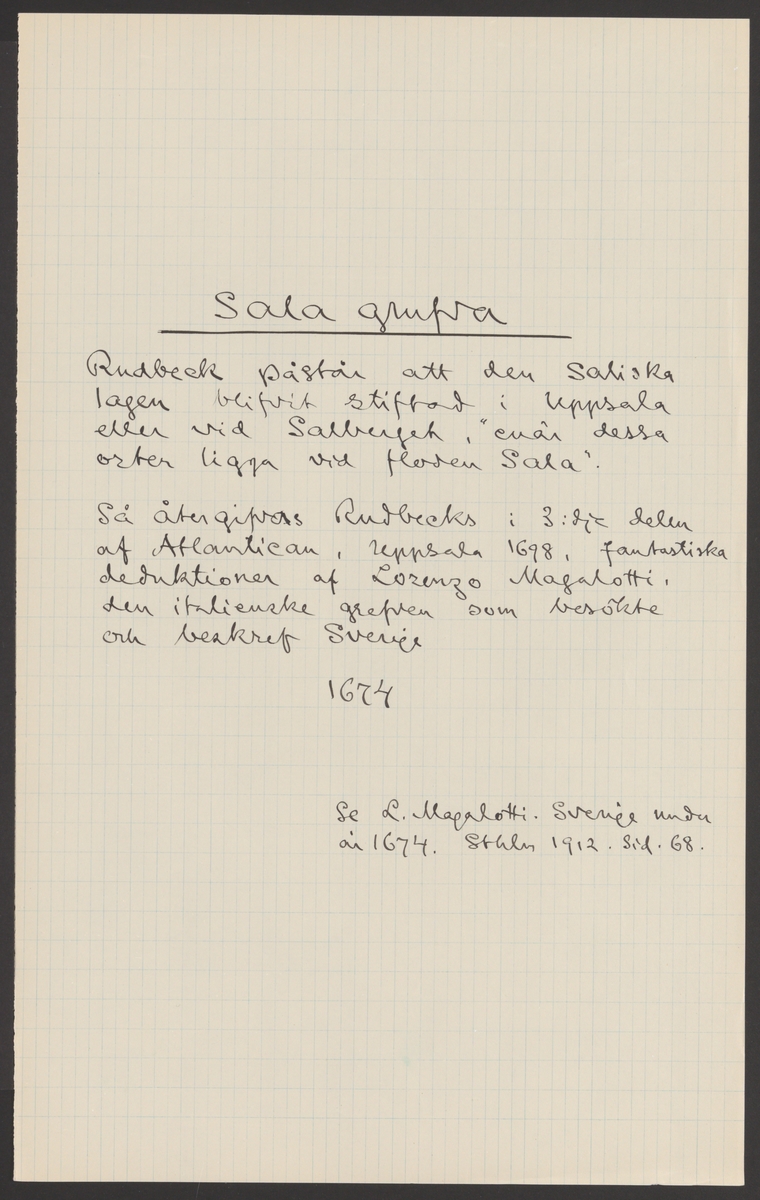 Sala grufva
Rudbeck påstår att den Saliska
lagen blifvit stiftad i Uppsala
eller vid Salberget, "enär dessa
orter ligga vid floden Sala".
Så återgifvas Rudbecks i 3:dje delen
af Atlantican, Uppsala 1698, fantastiska
deduktioner af Lorenzo Magalotti,
den italienske grefven som besökte
och beskref Sverige
1674
Se L. Magalotti. Sverige under
år 1674. Sthlm 1912. Sid. 68.